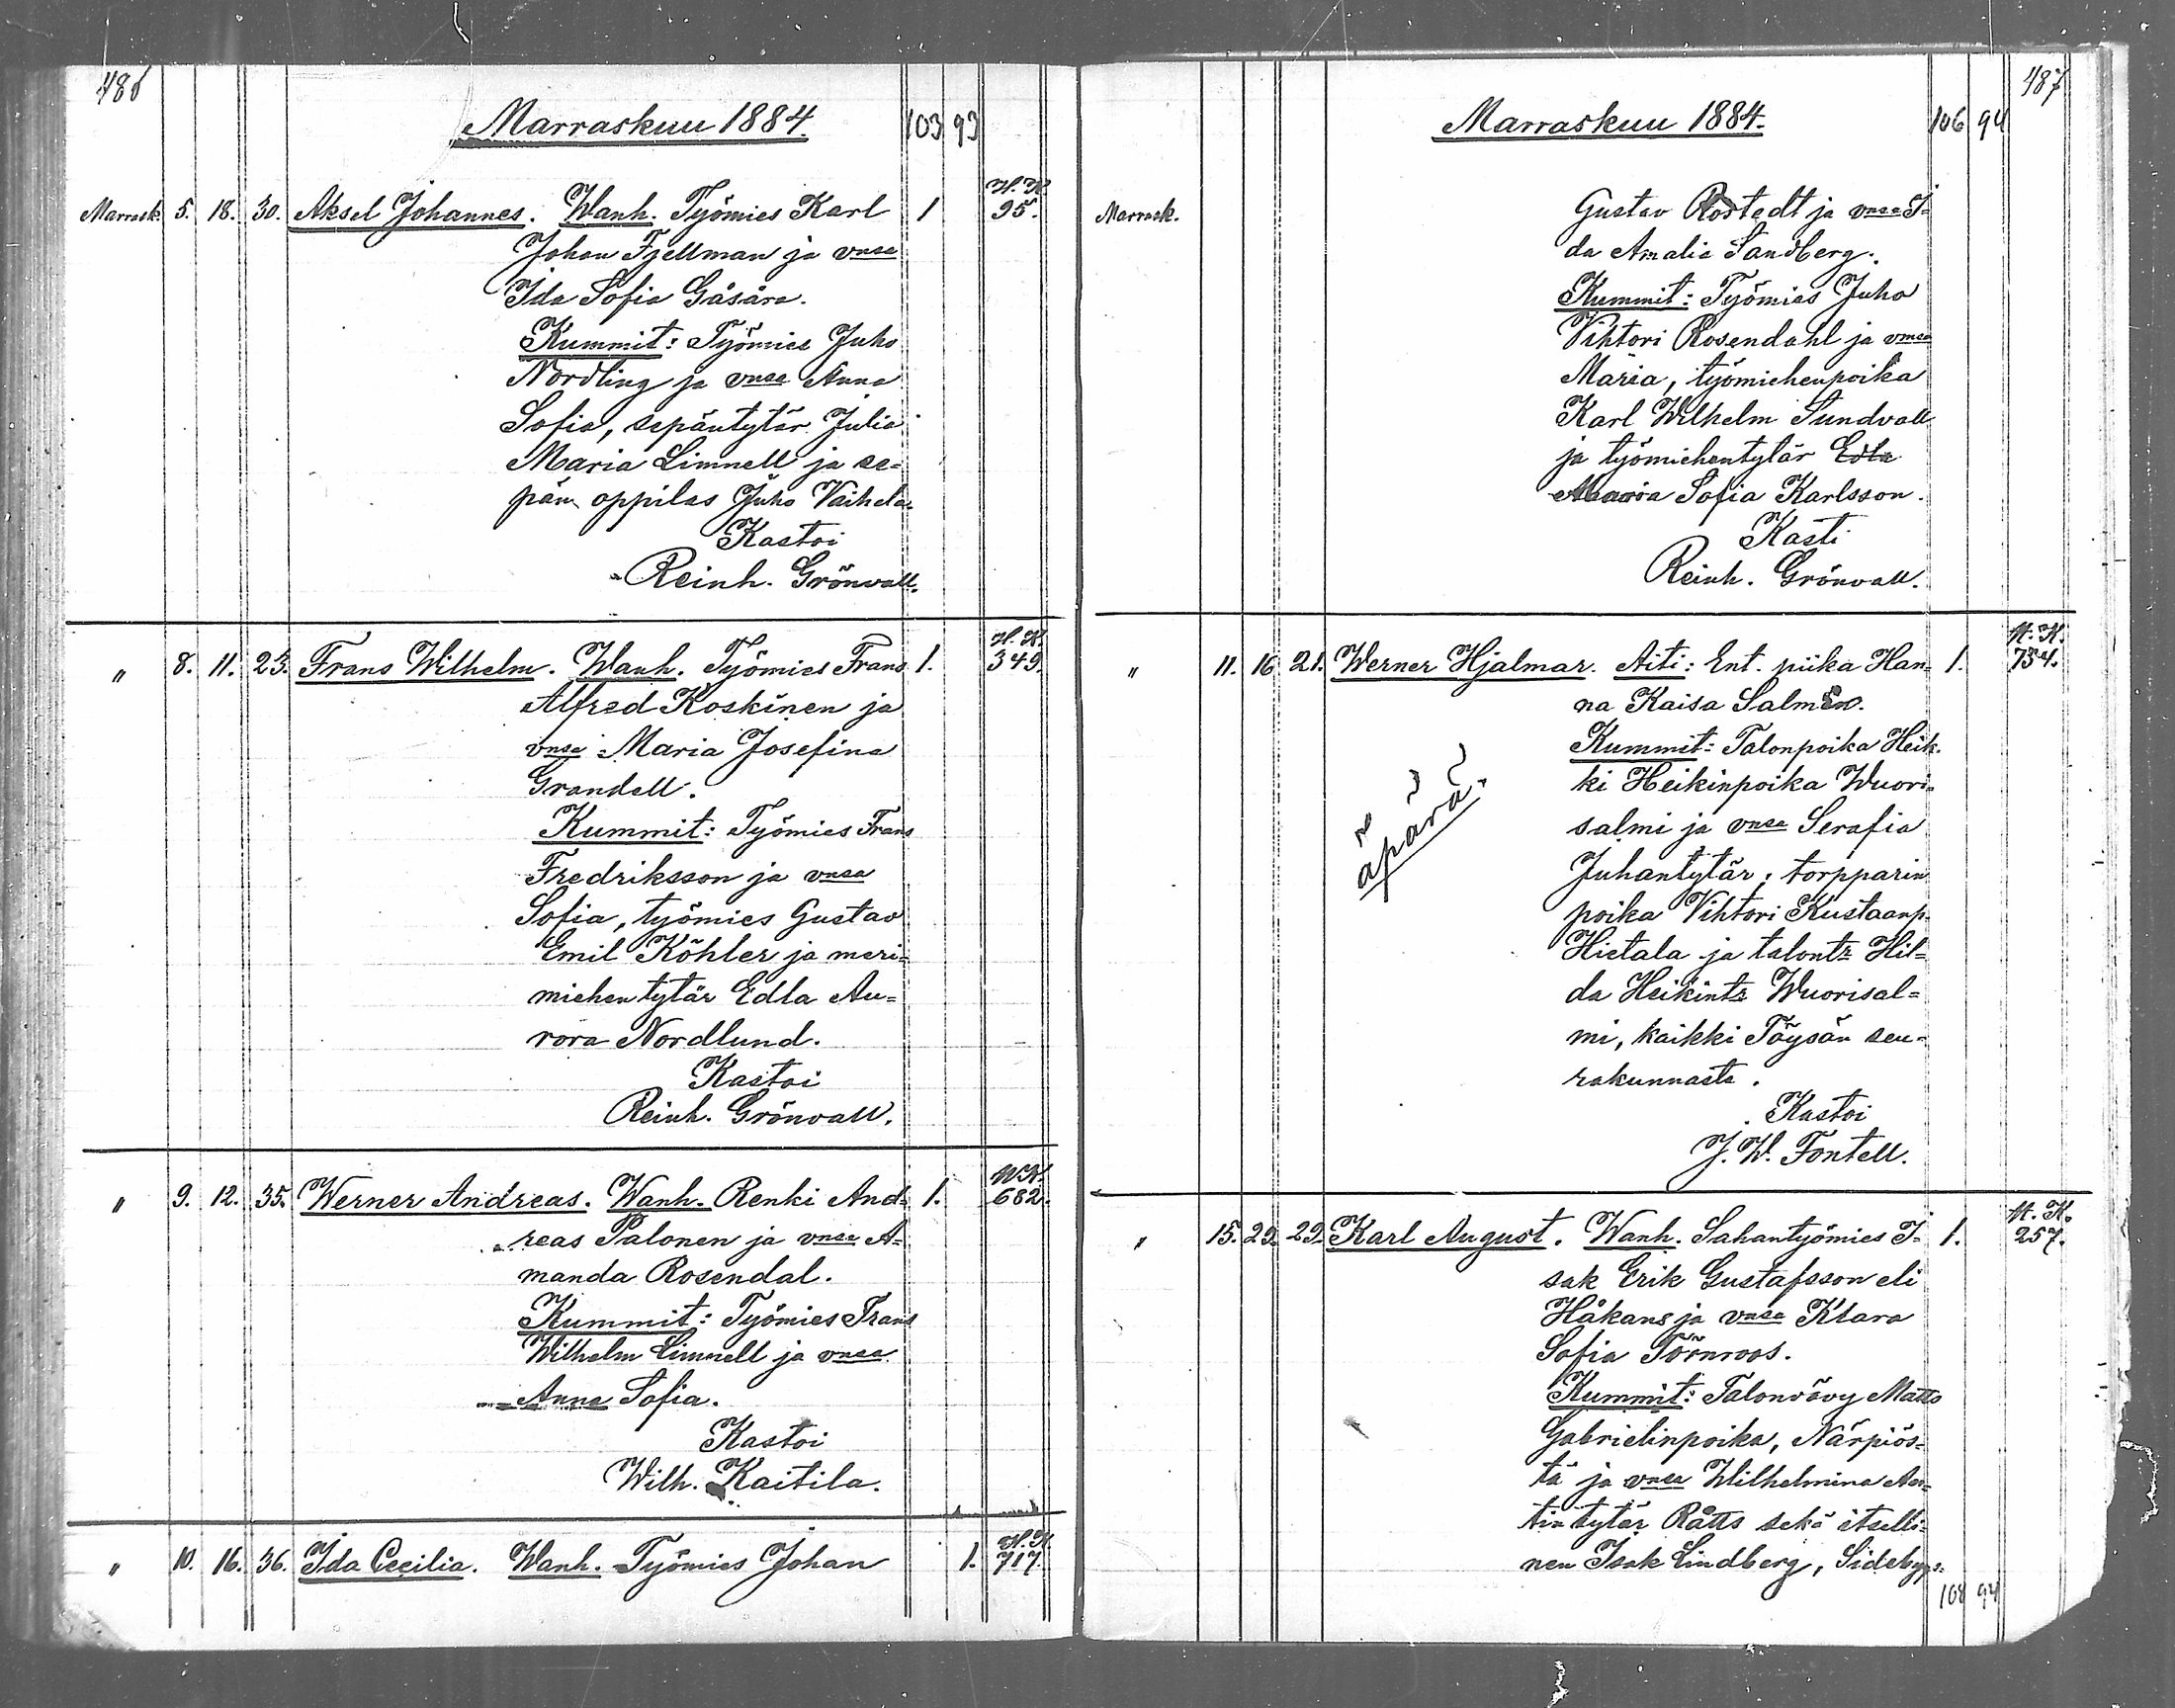 486
Marraskuu 1884.
103 93
Marrask. 5. 18. 30. Aksel Johannes. Wanh. Työmies Karl 1 H.K. 95.
Johan Fjellman ja vmsa
Ida Sofia Gåsåra.
Kummit: Työmies Juho
Nordling ja vmsa Anna
Sofia, sepäntytär Julia
Maria Limnell ja se-
pän oppilas Juho Vaihela.
Kastoi
Reinh. Grönvall.
" 8. 11. 23. Frans Wilhelm. Wanh. Työmies Frans 1. H.K. 349.
Alfred Koskinen ja
vmsa Maria Josefina
Grandell.
Kummit: Työmies Frans
Fredriksson ja vmsa
Sofia, työmies Gustav
Emil Köhler ja meri-
miehen tytär Edla Au-
rora Nordlund.
Kastoi
Reinh. Grönvall.
" 9. 12. 35. Werner Andreas. Wanh. Renki And- 1. 682.
reas Palonen ja vmsa A-
manda Rosendal.
Kummit: Työmies Frans
Wilhelm Limnell ja vmsa
Anna Sofia.
Kastoi
Wilh. Kaitila.
" 10. 16. 36. Ida Cecilia. Wanh. Työmies Johan 1. H.K. 717.
487
Marraskuu 1884.
106 94
Marrask. Gustav Rostedt ja vmsa I-
da Amalia Sandberg.
Kummit: Työmies Juho
Vihtori Rosendahl ja vmsa
Maria, työmiehenpoika
Karl Wilhelm Sundvall
ja työmiehentytär Edla
Maria Sofia Karlsson.
Kasti
Reinh. Grönvall.
" 11. 16 21. Werner Hjalmar. Aiti: Ent. piika Han- 1. H.K. 754.
na Kaisa Salmén.
Kummit: Talonpoika Heik-
ki Heikinpoika Wuori-
salmi ja vmsa Serafia
äpärä.
Juhantytär, torpparin
poika Vihtori Kustaanp.
Hietala ja talontr Hil-
da Heikintr Wuorisal-
mi, kaikki Töysän seu-
rakunnasta.
Kastoi
J. W. Fontell.
" 15. 29. 29. Karl August. Wanh. Sahantyömies I- 1. H.K. 257.
sak Erik Gustafsson eli
Håkans ja vmsa Klara
Sofia Törnroos.
Kummit: Talonvävy Matts
Gabrielinpoika, Närpiös-
tä ja vmsa Wilhelmina An-
tintytär Rätts sekä itselli-
nen Isak Lindberg, Sideby
108 94